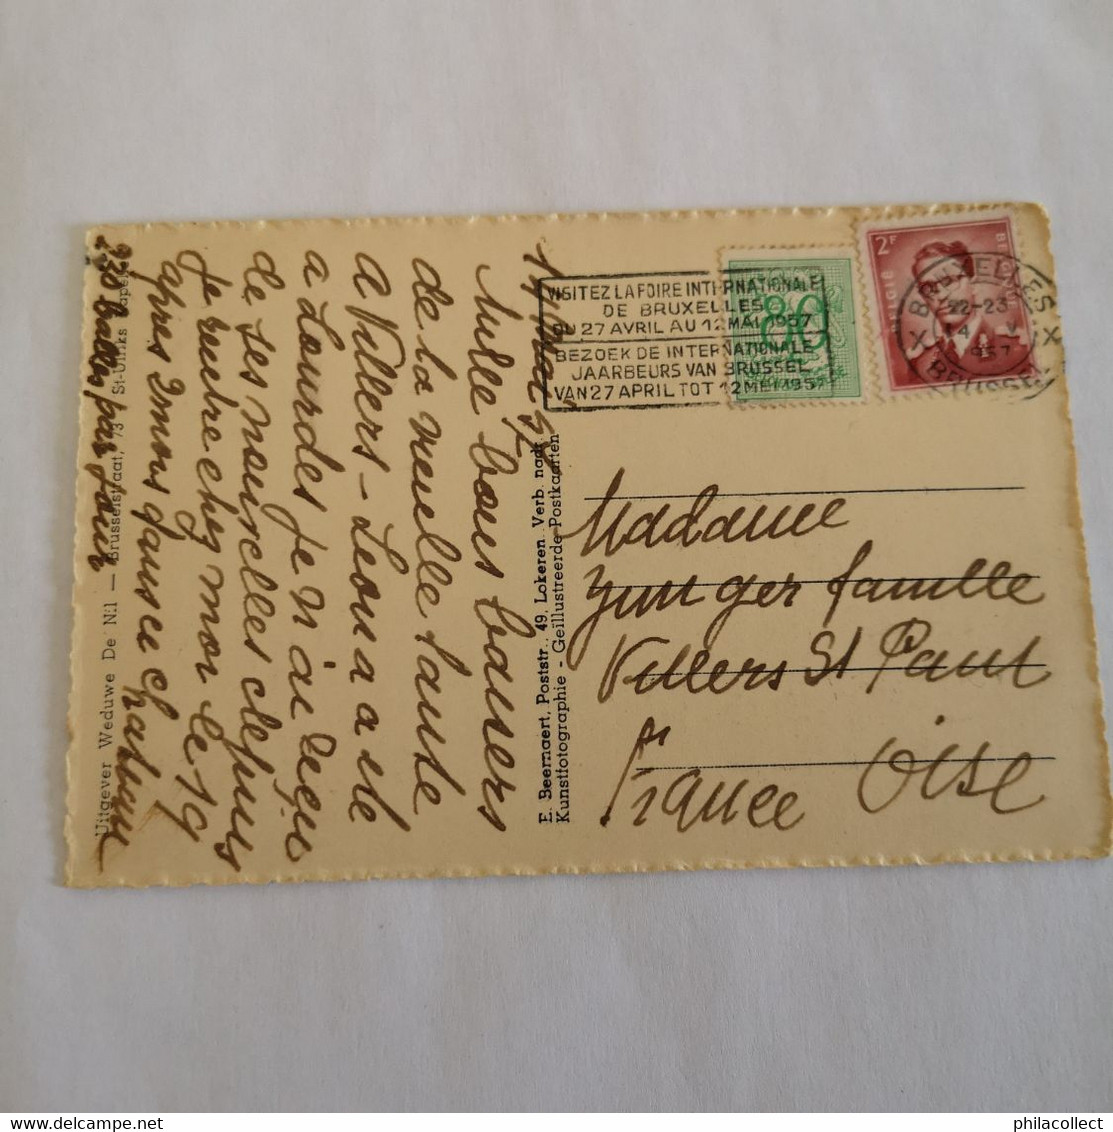 14 Mai 57
Mille bons baisers
de la vieille tante
a Villers-
a Lourdes je n'ai reçu
de ses nouvelles depuis
Je rentre chez moi le 19
apres 2 mois
par jour
Uitgever Weduwe De Nil — Brusselstraat, 73 St-Ulriks Kapelle
E. Beernaert, Poststr., 49, Lokeren Verb. nadr.
Kunstfotographie - Geïllustreerde Postkaarten
VISITEZ LA FOIRE INTERNATIONALE
DE BRUXELLES
DU 27 AVRIL AU 12 MAI 1957
BEZOEK DE INTERNATIONALE
JAARBEURS VAN BRUSSEL
VAN 27 APRIL TOT 12 MEI 1957
2F
BELGIE
BRUXELLES X
22-23
14 V
1957
BRUSSEL X
Madame
Zunger famille
Villers St Paul
Oise
France
philacollect